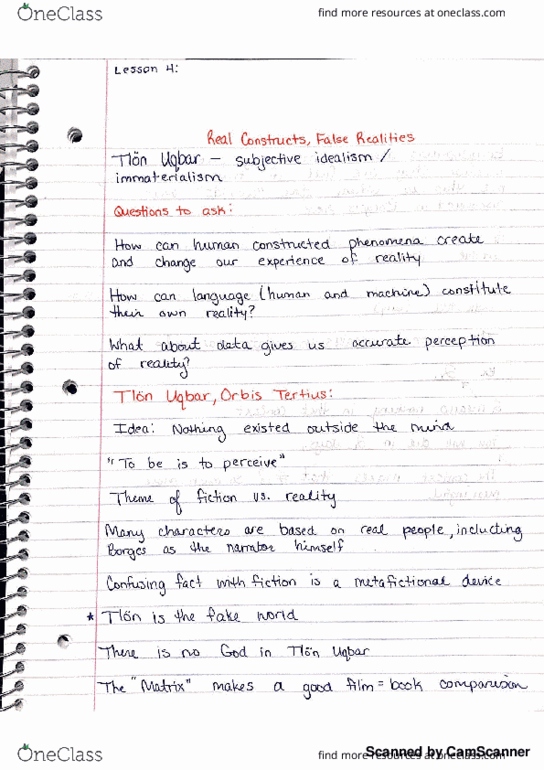 OneClass
find more resources at oneclass.com
Lesson 4:
Real Constructs, False Realities
Tlön Uqbar — subjective idealism /
immaterialism
Questions to ask:
How can human constructed phenomena create
and change our experience of reality
How can language (human and machine) constitute
their own reality?
What about data gives us accurate perception
of reality?
Tlön Uqbar, Orbis Tertius:
Idea: Nothing existed outside the mind
"To be is to perceive"
Theme of fiction vs. reality
Many characters are based on real people, including
Borges as the narrator himself
Confusing fact with fiction is a metafictional device
* Tlön is the fake world
There is no God in Tlön Uqbar
The "Matrix" makes a good film = book comparision
OneClass
find more resources at oneclass.com
Scanned by CamScanner